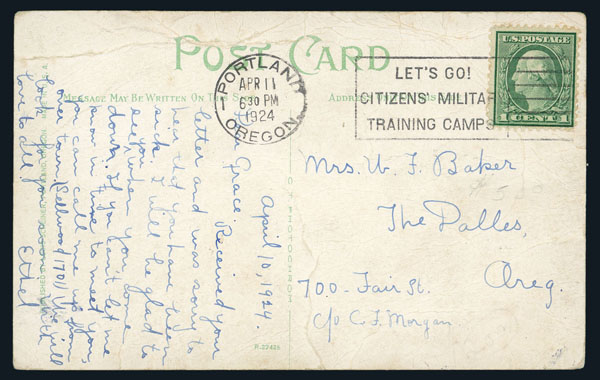 POST CARD
MESSAGE MAY BE WRITTEN ON THIS SIDE
ADDRESS
PORTLAND
APR 11
6 30 PM
1924
OREGON
LET'S GO!
CITIZENS' MILITARY
TRAINING CAMPS
U.S. POSTAGE
1 CENT 1
April 10, 1924.
Dear Grace: Received your
letter and was sorry to
hear that you have been
sick. I will be glad to
see you when you come
down. If you can't let me
know in time to meet you,
you can call me up from
over town. (Sellwood 1701) We will
look for you soon. With
love to all
Ethel
Mrs. W. F. Baker
The Dalles,
Oreg.
700 - Fair St.
c/o C. F. Morgan
R-22425